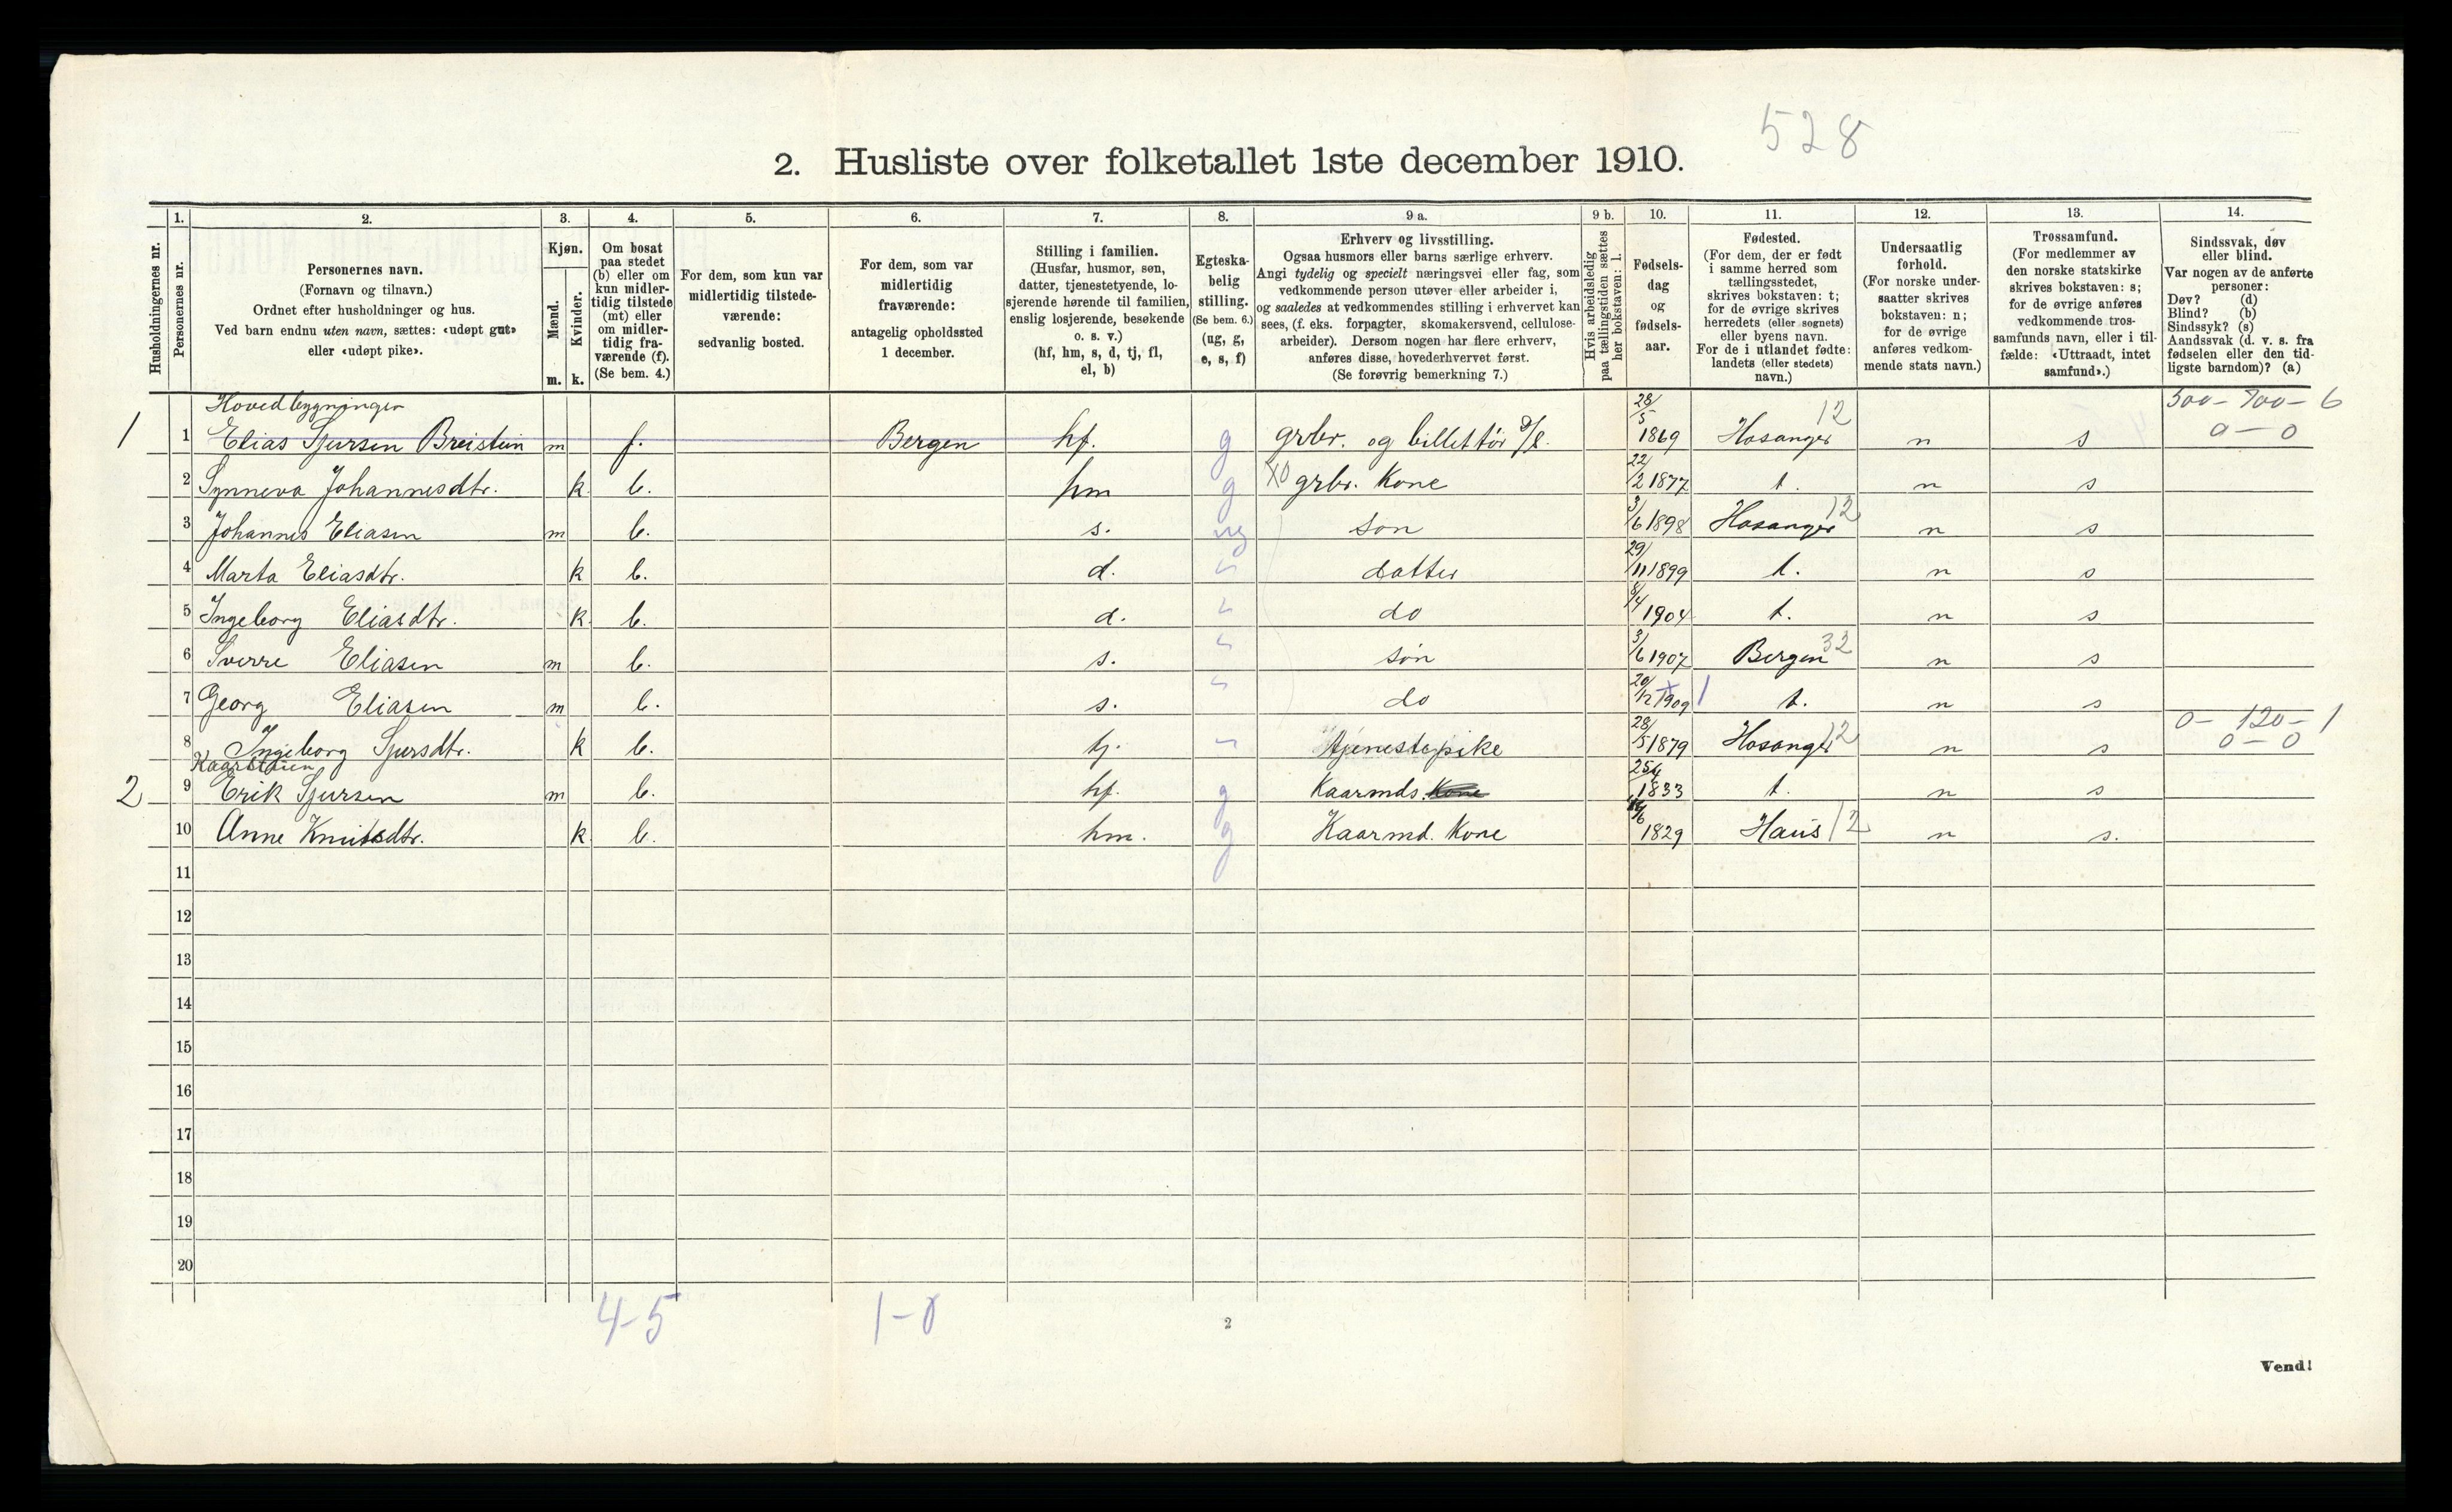 528
2. Husliste over folketallet 1ste december 1910.
Husholdningernes nr.
1.
Personernes nr.
2.
Personernes navn.
(Fornavn og tilnavn.)
Ordnet efter husholdninger og hus.
Ved barn endnu uten navn, sættes: «udøpt gut»
eller «udøpt pike».
3.
Kjøn.
Mænd.
Kvinder.
m. k.
4.
Om bosat
paa stedet
(b) eller om
kun midler-
tidig tilstede
(mt) eller
om midler-
tidig fra-
værende (f).
(Se bem. 4.)
5.
For dem, som kun var
midlertidig tilstede-
værende:
sedvanlig bosted.
6.
For dem, som var
midlertidig
fraværende:
antagelig opholdssted
1 december.
7.
Stilling i familien.
(Husfar, husmor, søn,
datter, tjenestetyende, lo-
sjerende hørende til familien,
enslig losjerende, besøkende
o. s. v.)
(hf, hm, s, d, tj, fl,
el, b)
8.
Egteska-
belig
stilling.
(Se bem. 6.)
(ug, g,
e, s, f)
9 a.
Erhverv og livsstilling.
Ogsaa husmors eller barns særlige erhverv.
Angi tydelig og specielt næringsvei eller fag, som
vedkommende person utøver eller arbeider i,
og saaledes at vedkommendes stilling i erhvervet kan
sees, (f. eks. forpagter, skomakersvend, cellulose-
arbeider). Dersom nogen har flere erhverv,
anføres disse, hovederhvervet først.
(Se forøvrig bemerkning 7.)
9 b.
Hvis arbeidsledig
paa tællingstiden sættes
her bokstaven: l.
10.
Fødsels-
dag
og
fødsels-
aar.
11.
Fødested.
(For dem, der er født
i samme herred som
tællingsstedet,
skrives bokstaven: t;
for de øvrige skrives
herredets (eller sognets)
eller byens navn.
For de i utlandet fødte:
landets (eller stedets)
navn.)
12.
Undersaatlig
forhold.
(For norske under-
saatter skrives
bokstaven: n;
for de øvrige
anføres vedkom-
mende stats navn.)
13.
Trossamfund.
(For medlemmer av
den norske statskirke
skrives bokstaven: s;
for de øvrige anføres
vedkommende tros-
samfunds navn, eller i til-
fælde: «Uttraadt, intet
samfund».)
14.
Sindssvak, døv
eller blind.
Var nogen av de anførte
personer:
Døv? (d)
Blind? (b)
Sindssyk? (s)
Aandssvak (d. v. s. fra
fødselen eller den tid-
ligste barndom)? (a)
Hovedbygningen 500-700-6
1 1 Elias Sjursen Breistein m f. Bergen hf. g grbr. og billettør D/S. 28/5 1869 Hosanger 12 n s 0-0
2 Synneva Johannesdtr. k b. hm g grbr. Kone 22/2 1877 t. n s
3 Johannes Eliasen m b. s. ug søn 3/6 1898 Hosanger 12 n s
4 Marta Eliasdtr. k b. d. " datter 29/11 1899 t. n s
5 Ingeborg Eliasdtr. k b. d. " do 8/4 1904 t. n s
6 Sverre Eliasen m b. s. " søn 3/6 1907 Bergen 32 n s
7 Georg Eliasen m b. s. " do 20/12 1909 1 t. n s
0-120-1
8 Ingeborg Sjursdtr. k b. tj. " tjenestepike 28/5 1879 Hosanger 12 n s 0-0
Kaarstuen
2 9 Erik Sjursen m b. hf. g Kaarmds. Kone 25/4 1833 t. n s
10 Anne Knutsdtr. k b. hm. g Kaarmd. Kone 1829 Haus 12 n s.
11
12
13
14
15
16
17
18
19
20
4-5 1-0
2
Vend!